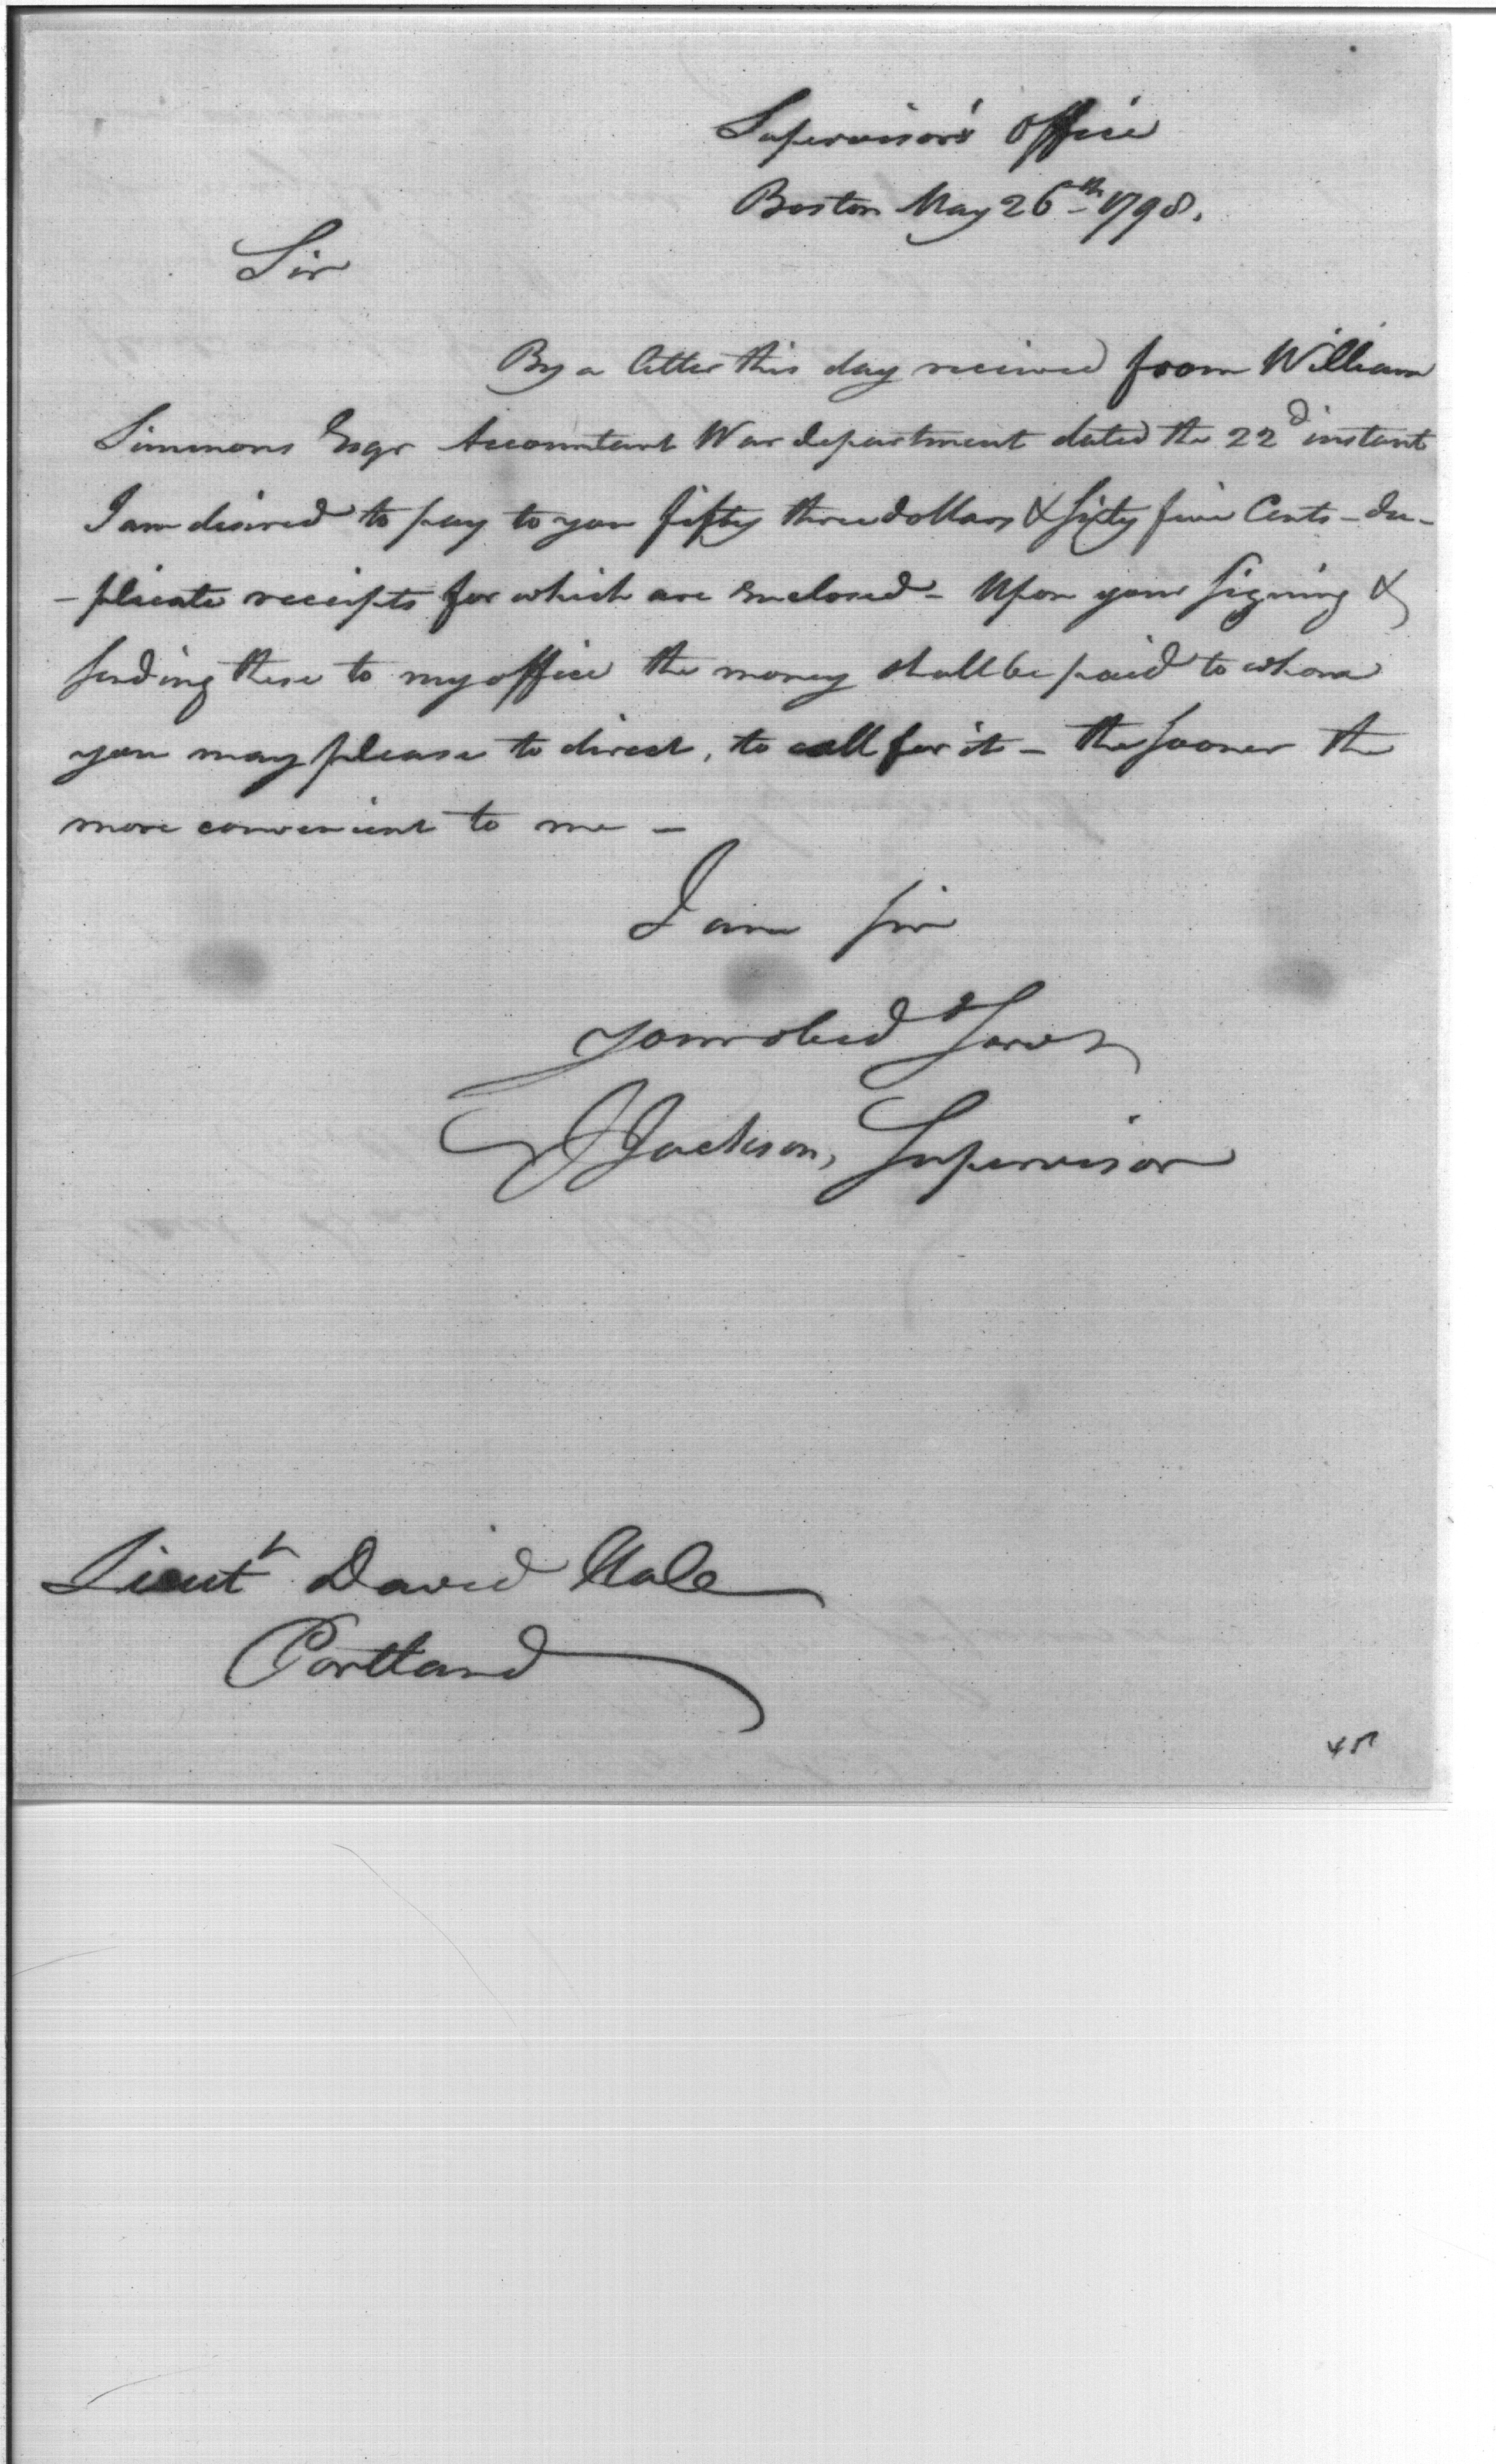 Supervisor's Office
Boston May 26th 1798.
Sir
By a letter this day received from William
Simmons Esqr Accountant War department dated the 22d instant
I am desired to pay to you fifty three dollars & sixty five Cents - du-
- plicate receipts for which are enclosed - Upon your signing &
sending these to my office the money shall be paid to whom
you may please to direct, to call for it - the sooner the
more convenient to me -
I am sir
Your obed Servt
J Jackson, Supervisor
Lieut David Hale
Portland
45